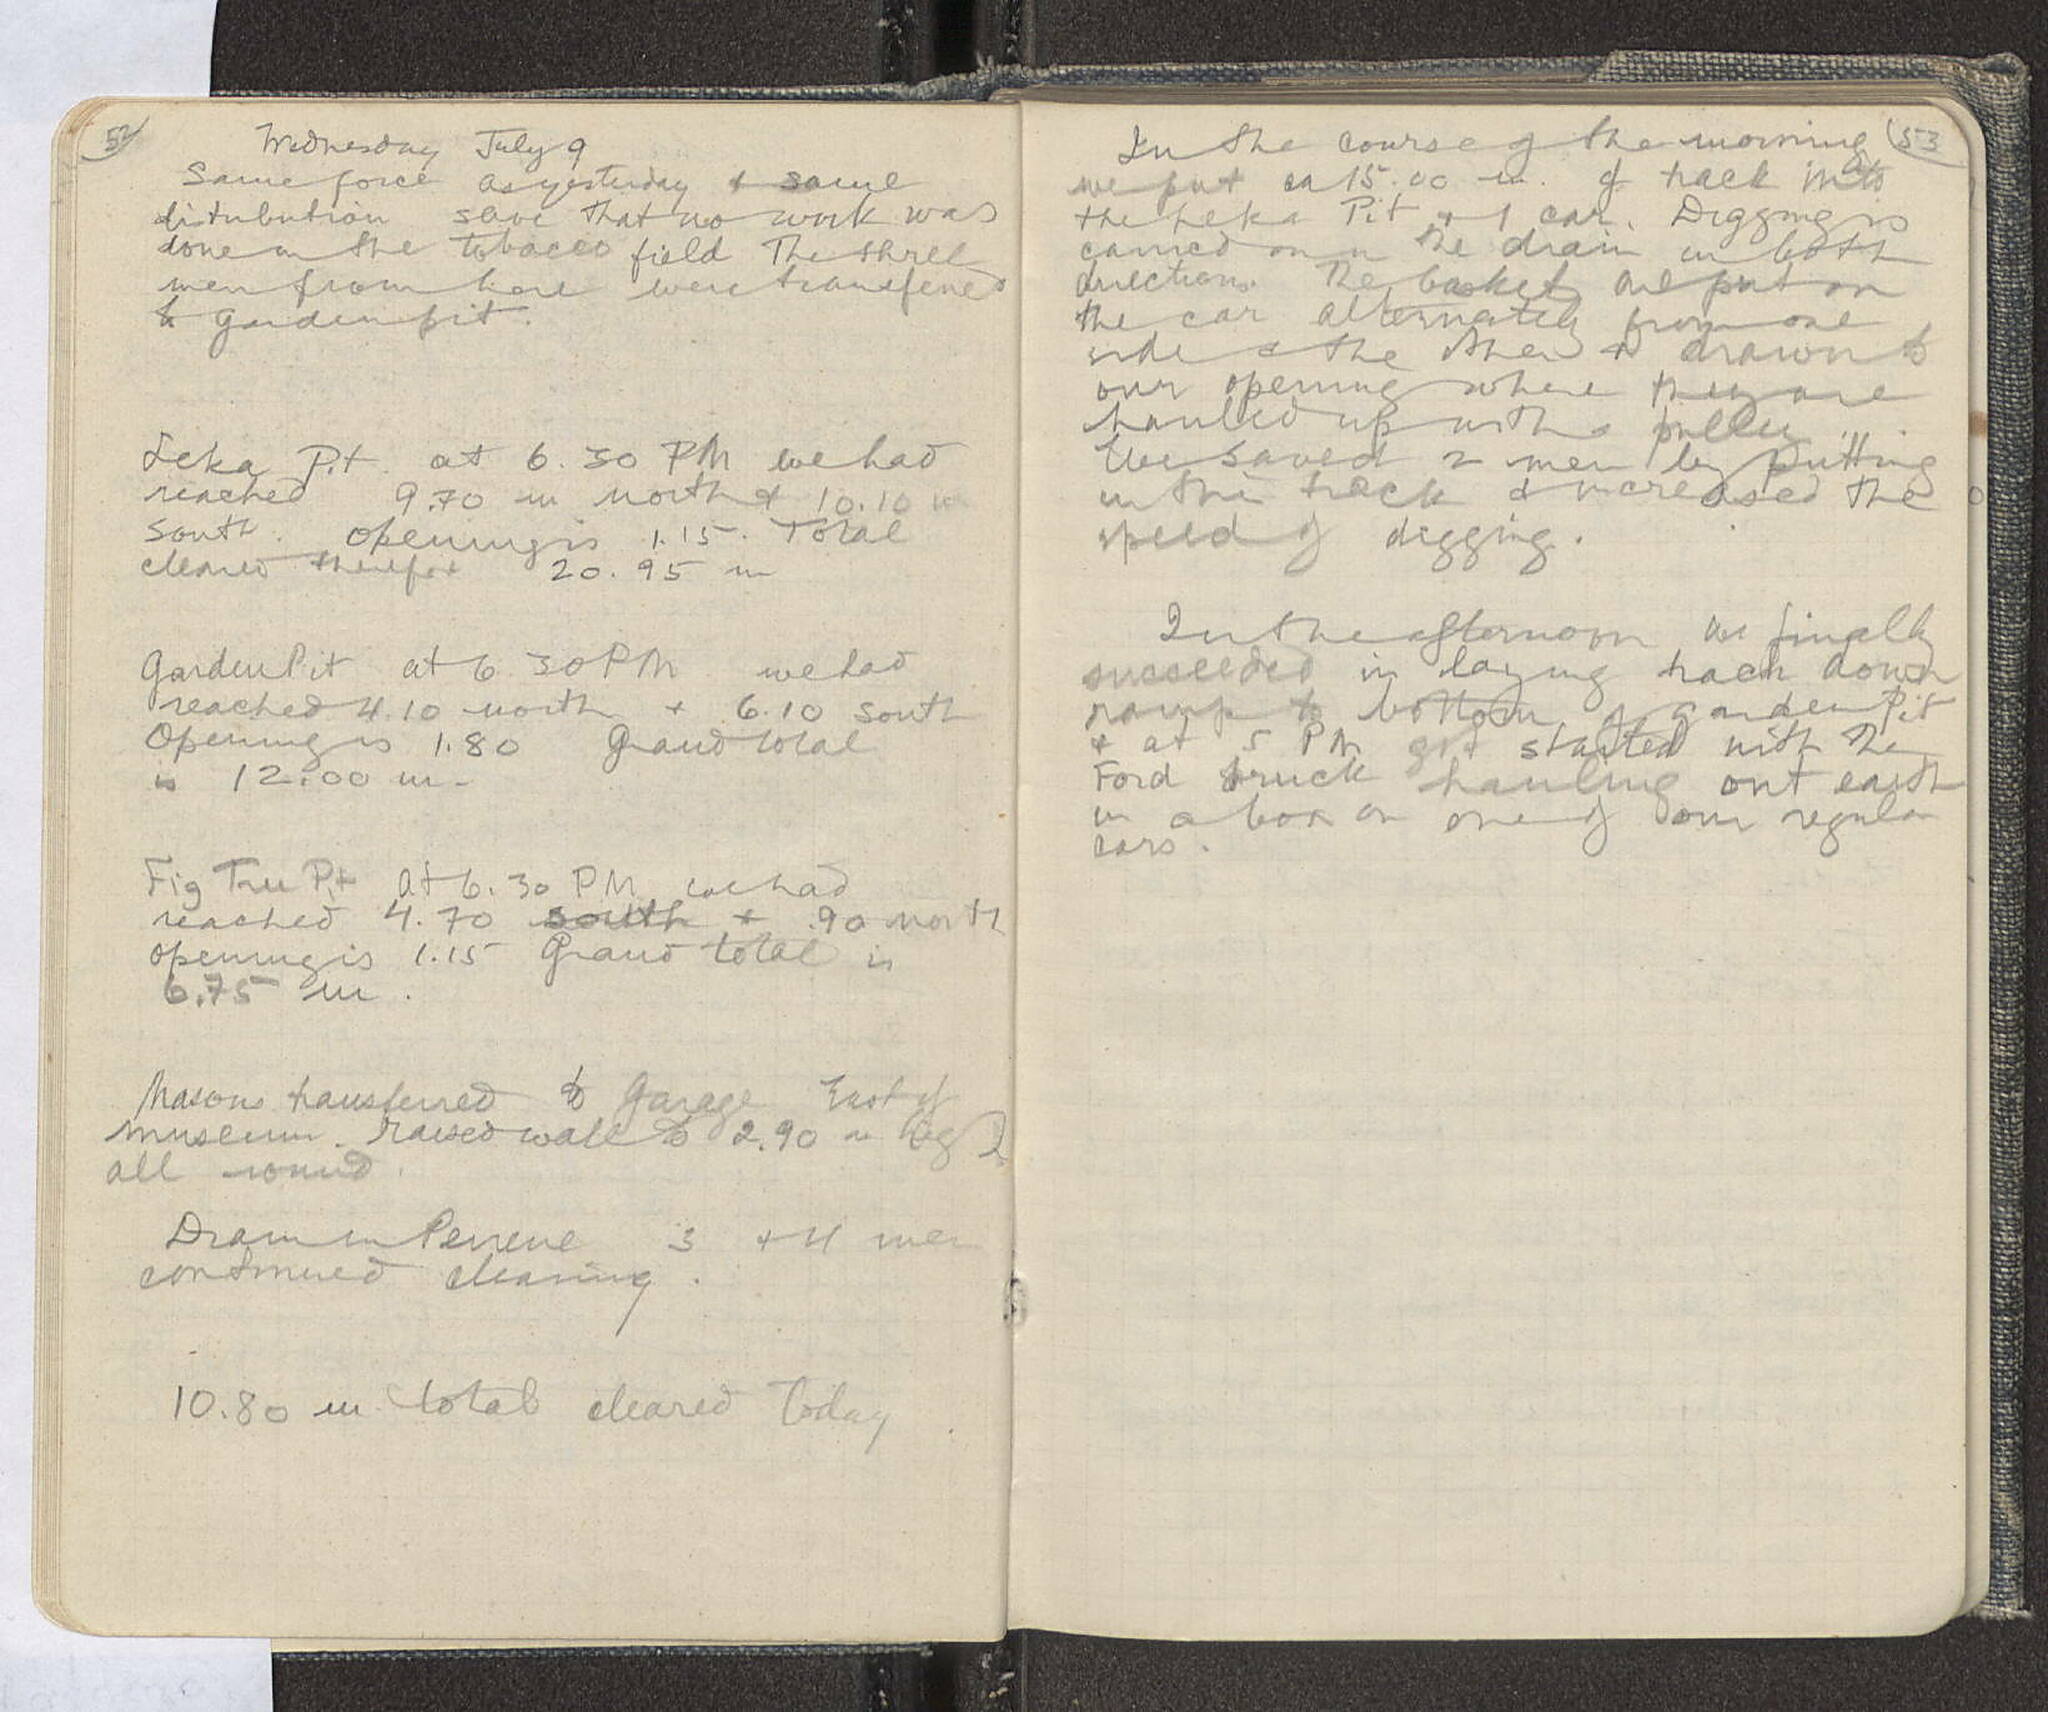 52
Wednesday July 9
Same force as yesterday & same
distribution save that no work was
done in the tobacco field The three
men from here were transferred
to Garden pit.
Leka Pit. at 6.30 PM we had
reached 9.70 m north & 10.10 m
South. Opening is 1.15. Total
cleared therefor 20.95 m
Garden Pit at 6 30 PM we had
reached 4.10 north + 6.10 South
Opening is 1.80 Grand total
is 12.00 m.
Fig Tree Pit at 6.30 PM we had
reached 4.70 south + .90 north
opening is 1.15 Grand total is
6.75 m.
Masons transferred to Garage East of
museum. Raised wall to 2.90 m
all round.
Drain in Perseia 3 + 4 men
continued clearing.
10.80 m total cleared Today
53
In the course of the morning
we put ca 15.00 m. of track into
the Leka Pit & 1 car. Digging is
carried on in the drain in both
directions. The baskets are put on
the car alternately from one
side & the other & drawn to
our opening where they are
hauled up with a pulley.
We saved 2 men by putting
in this track & increased the
speed of digging.
In the afternoon we finally
succeeded in laying track down
ramp to bottom of Garden Pit
& at 5 PM got started with the
Ford truck hauling out earth
in a box on one of our regular
cars.